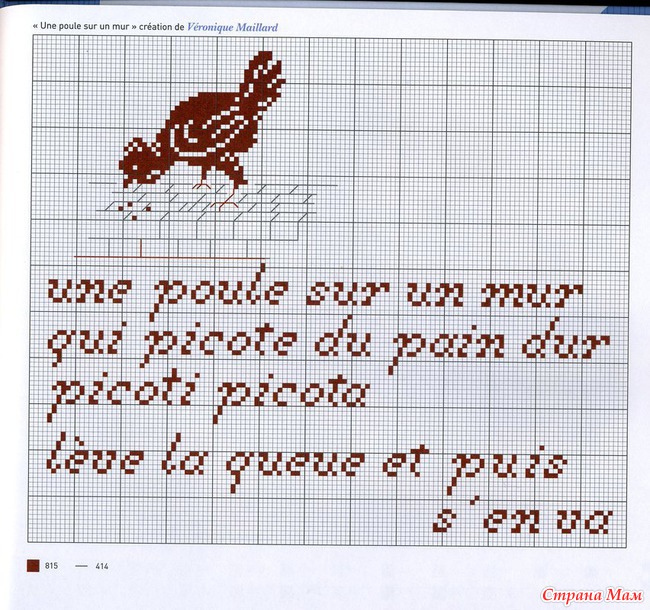 « Une poule sur un mur » création de Véronique Maillard
une poule sur un mur
qui picote du pain dur
picoti picota
lève la queue et puis
s'en va
815 — 414
Страна Мам